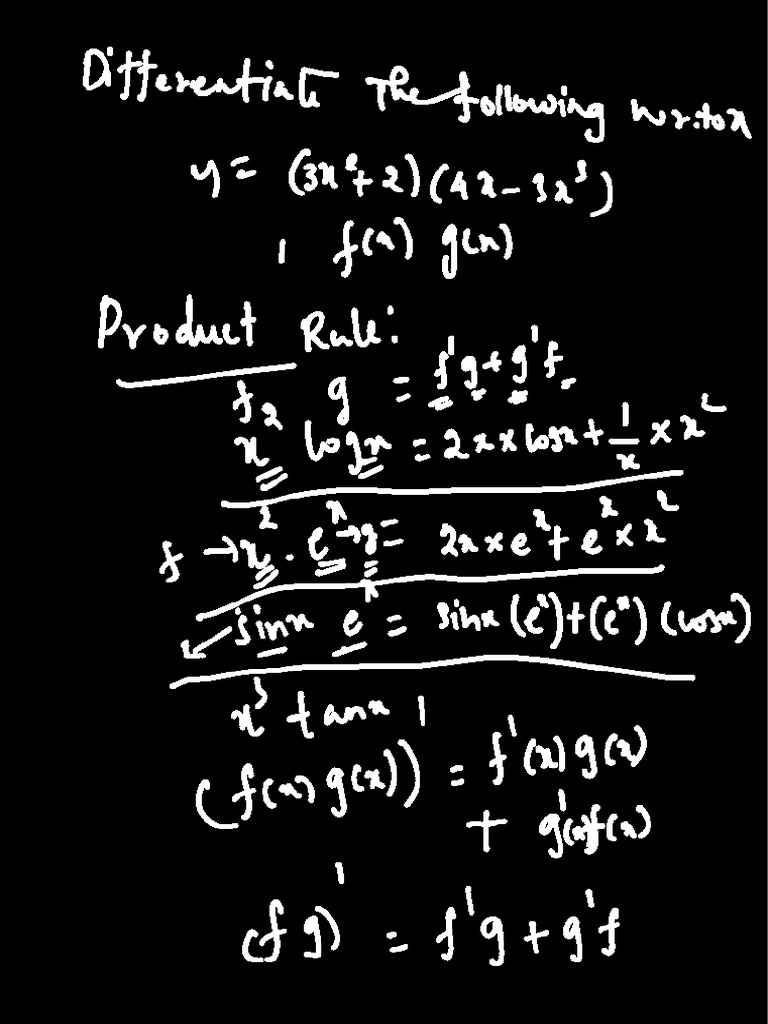 Differentiate The following w.r.to x
y = (3x²+2)(4x-3x³)
f(x) g(x)
Product Rule:
f g = f'g + g'f
x² logx = 2x × logx + 1/x × x²
f → x² . eˣ → g = 2x × eˣ + eˣ × x²
sinx eˣ = sinx (eˣ) + (eˣ) (cosx)
x³ tanx
(f(x) g(x))' = f'(x) g(x)
+ g'(x)f(x)
(fg)' = f'g + g'f